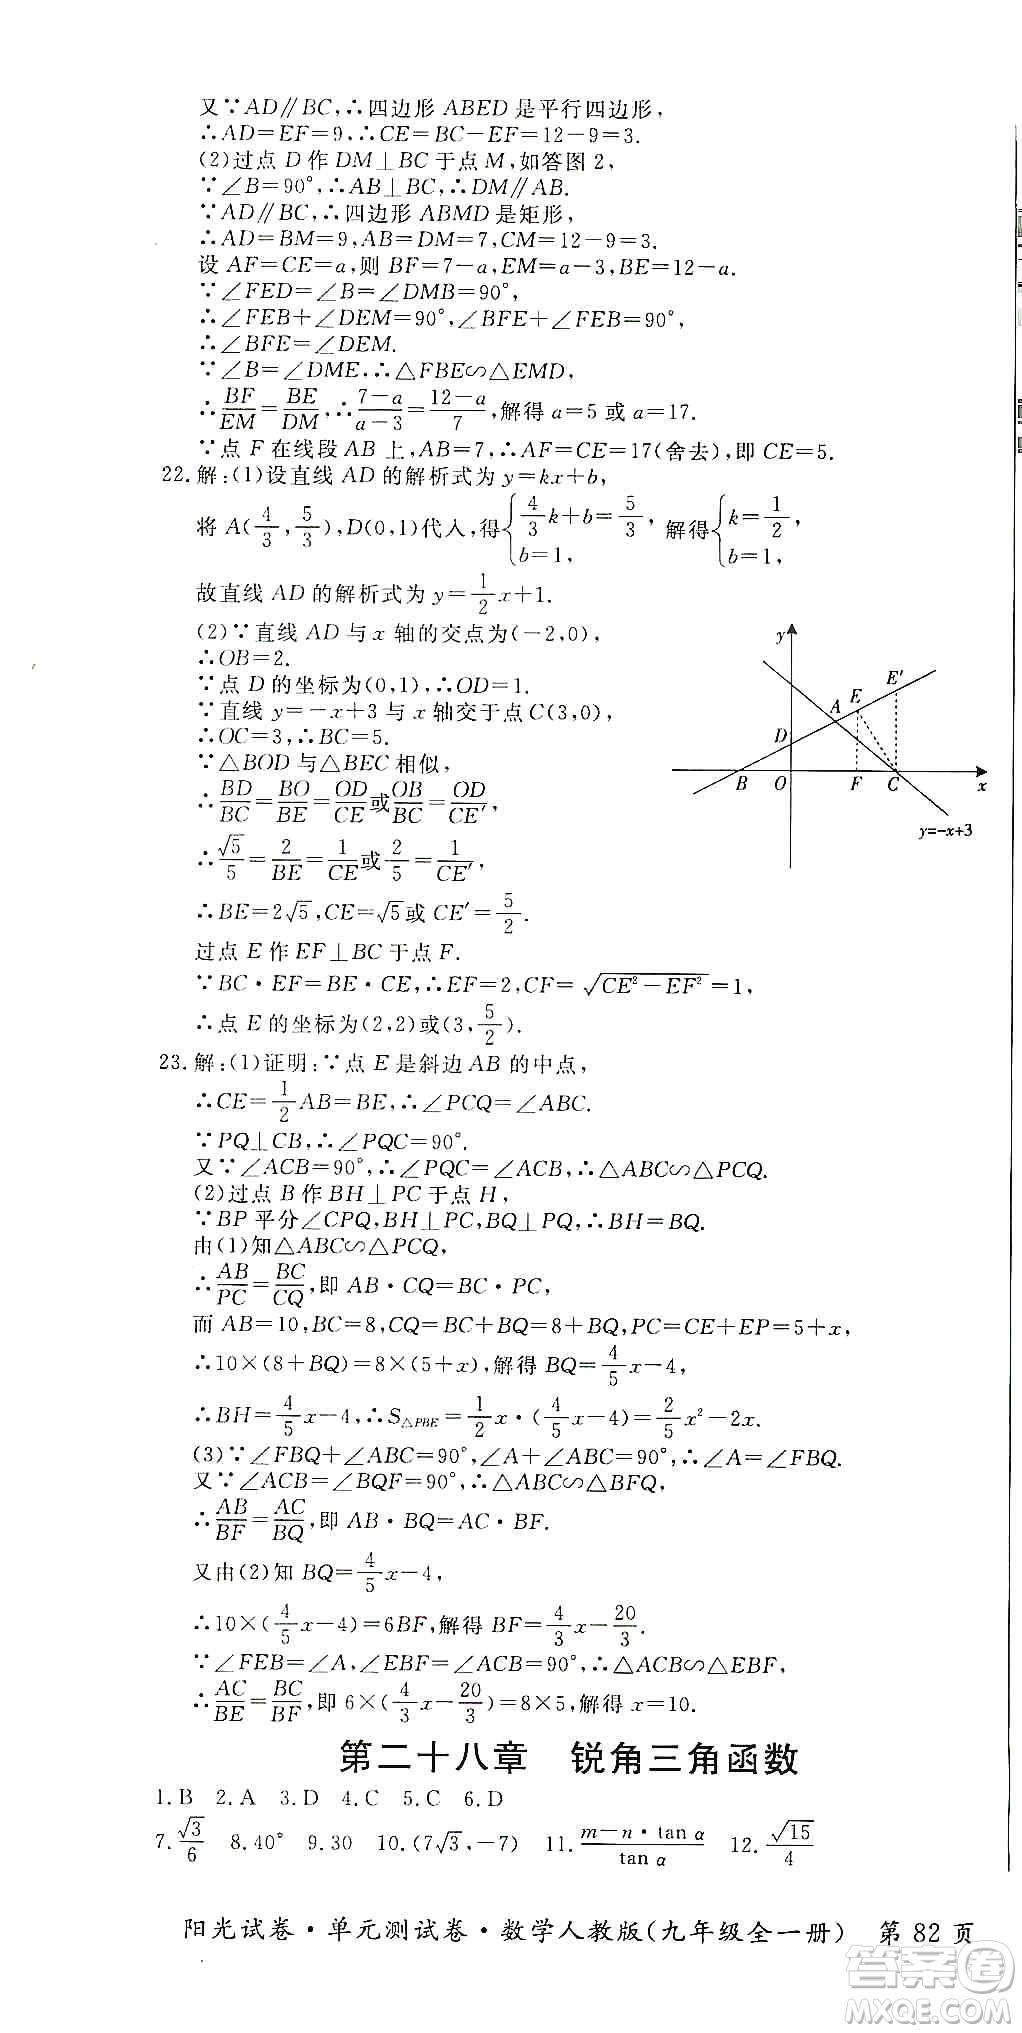 又∵AD∥BC,∴四边形 ABED 是平行四边形,
∴AD=EF=9,∴CE=BC-EF=12-9=3.
(2)过点 D 作 DM⊥BC 于点 M,如答图 2,
∵∠B=90°,∴AB⊥BC,∴DM∥AB.
∵AD∥BC,∴四边形 ABMD 是矩形,
∴AD=BM=9,AB=DM=7,CM=12-9=3.
设 AF=CE=a,则 BF=7-a,EM=a-3,BE=12-a.
∵∠FED=∠B=∠DMB=90°,
∴∠FEB+∠DEM=90°,∠BFE+∠FEB=90°,
∴∠BFE=∠DEM.
∵∠B=∠DME,∴△FBE∽△EMD,
∴BF/EM=BE/DM,∴(7-a)/(a-3)=(12-a)/7,解得 a=5 或 a=17.
∵点 F 在线段 AB 上,AB=7,∴AF=CE=17(舍去),即 CE=5.
22.解:(1)设直线 AD 的解析式为 y=kx+b,
将 A(4/3,5/3),D(0,1)代入,得{4/3k+b=5/3,b=1, 解得{k=1/2,b=1,
故直线 AD 的解析式为 y=1/2x+1.
(2)∵直线 AD 与 x 轴的交点为(-2,0),
∴OB=2.
∵点 D 的坐标为(0,1),∴OD=1.
∵直线 y=-x+3 与 x 轴交于点 C(3,0),
∴OC=3,∴BC=5.
∵△BOD 与△BEC 相似,
∴BD/BC=BO/BE=OD/CE或OB/BC=OD/CE′,
∴√5/5=2/BE=1/CE或2/5=1/CE′,
∴BE=2√5,CE=√5或 CE′=5/2.
过点 E 作 EF⊥BC 于点 F.
∵BC·EF=BE·CE,∴EF=2,CF=√(CE²-EF²)=1,
∴点 E 的坐标为(2,2)或(3,5/2).
y
E′
E
A
D
B
O
F
C
x
y=-x+3
23.解:(1)证明:∵点 E 是斜边 AB 的中点,
∴CE=1/2AB=BE,∴∠PCQ=∠ABC.
∵PQ⊥CB,∴∠PQC=90°.
又∵∠ACB=90°,∴∠PQC=∠ACB,∴△ABC∽△PCQ.
(2)过点 B 作 BH⊥PC 于点 H,
∵BP 平分∠CPQ,BH⊥PC,BQ⊥PQ,∴BH=BQ.
由(1)知△ABC∽△PCQ,
∴AB/PC=BC/CQ,即 AB·CQ=BC·PC,
而 AB=10,BC=8,CQ=BC+BQ=8+BQ,PC=CE+EP=5+x,
∴10×(8+BQ)=8×(5+x),解得 BQ=4/5x-4,
∴BH=4/5x-4,∴S△PBE=1/2x·(4/5x-4)=2/5x²-2x.
(3)∵∠FBQ+∠ABC=90°,∠A+∠ABC=90°,∴∠A=∠FBQ.
又∵∠ACB=∠BQF=90°,∴△ABC∽△BFQ,
∴AB/BF=AC/BQ,即 AB·BQ=AC·BF.
又由(2)知 BQ=4/5x-4,
∴10×(4/5x-4)=6BF,解得 BF=4/3x-20/3.
∵∠FEB=∠A,∠EBF=∠ACB=90°,∴△ACB∽△EBF,
∴AC/BE=BC/BF,即 6×(4/3x-20/3)=8×5,解得 x=10.
第二十八章 锐角三角函数
1.B 2.A 3.D 4.C 5.C 6.D
7.√3/6 8.40° 9.30 10.(7√3,-7) 11.(m-n·tan α)/tan α 12.√15/4
阳光试卷·单元测试卷·数学人教版(九年级全一册) 第 82 页
答案圈
MXQE.COM